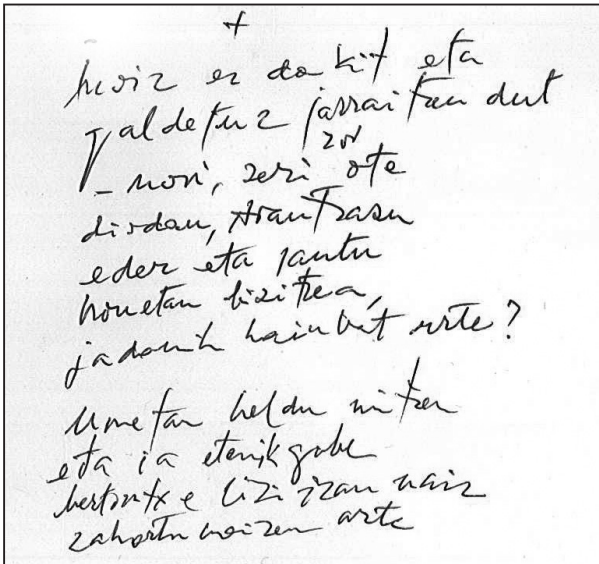 +
inoiz ez dakit eta
galdetuz jarraitzen dut
zor
– nori, zeri ote
diodan, Arantzazu
eder eta santu
honetan bizitzea,
jadanik hainbat urte?
Umetan heldu nintzen
eta ia etenik gabe
bertantxe bizi izan naiz
zahartu naizen arte